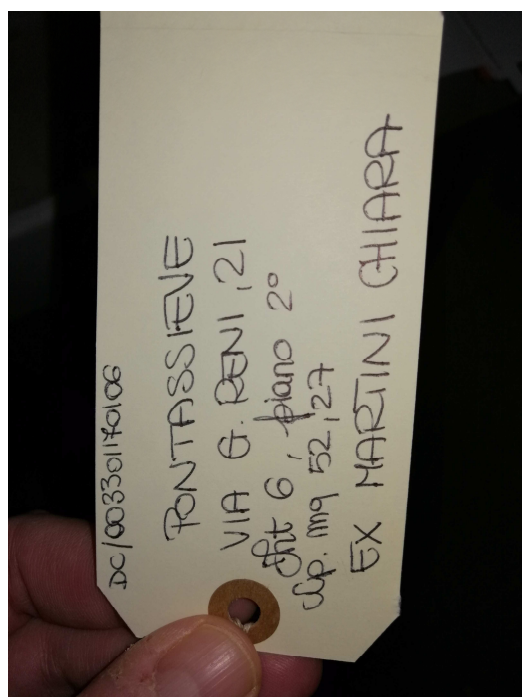 DC/003301170106
PONTASSIEVE
VIA G. RENI, 21
Int 6, piano 2°
Sup. mq 52,27
EX MARTINI CHIARA